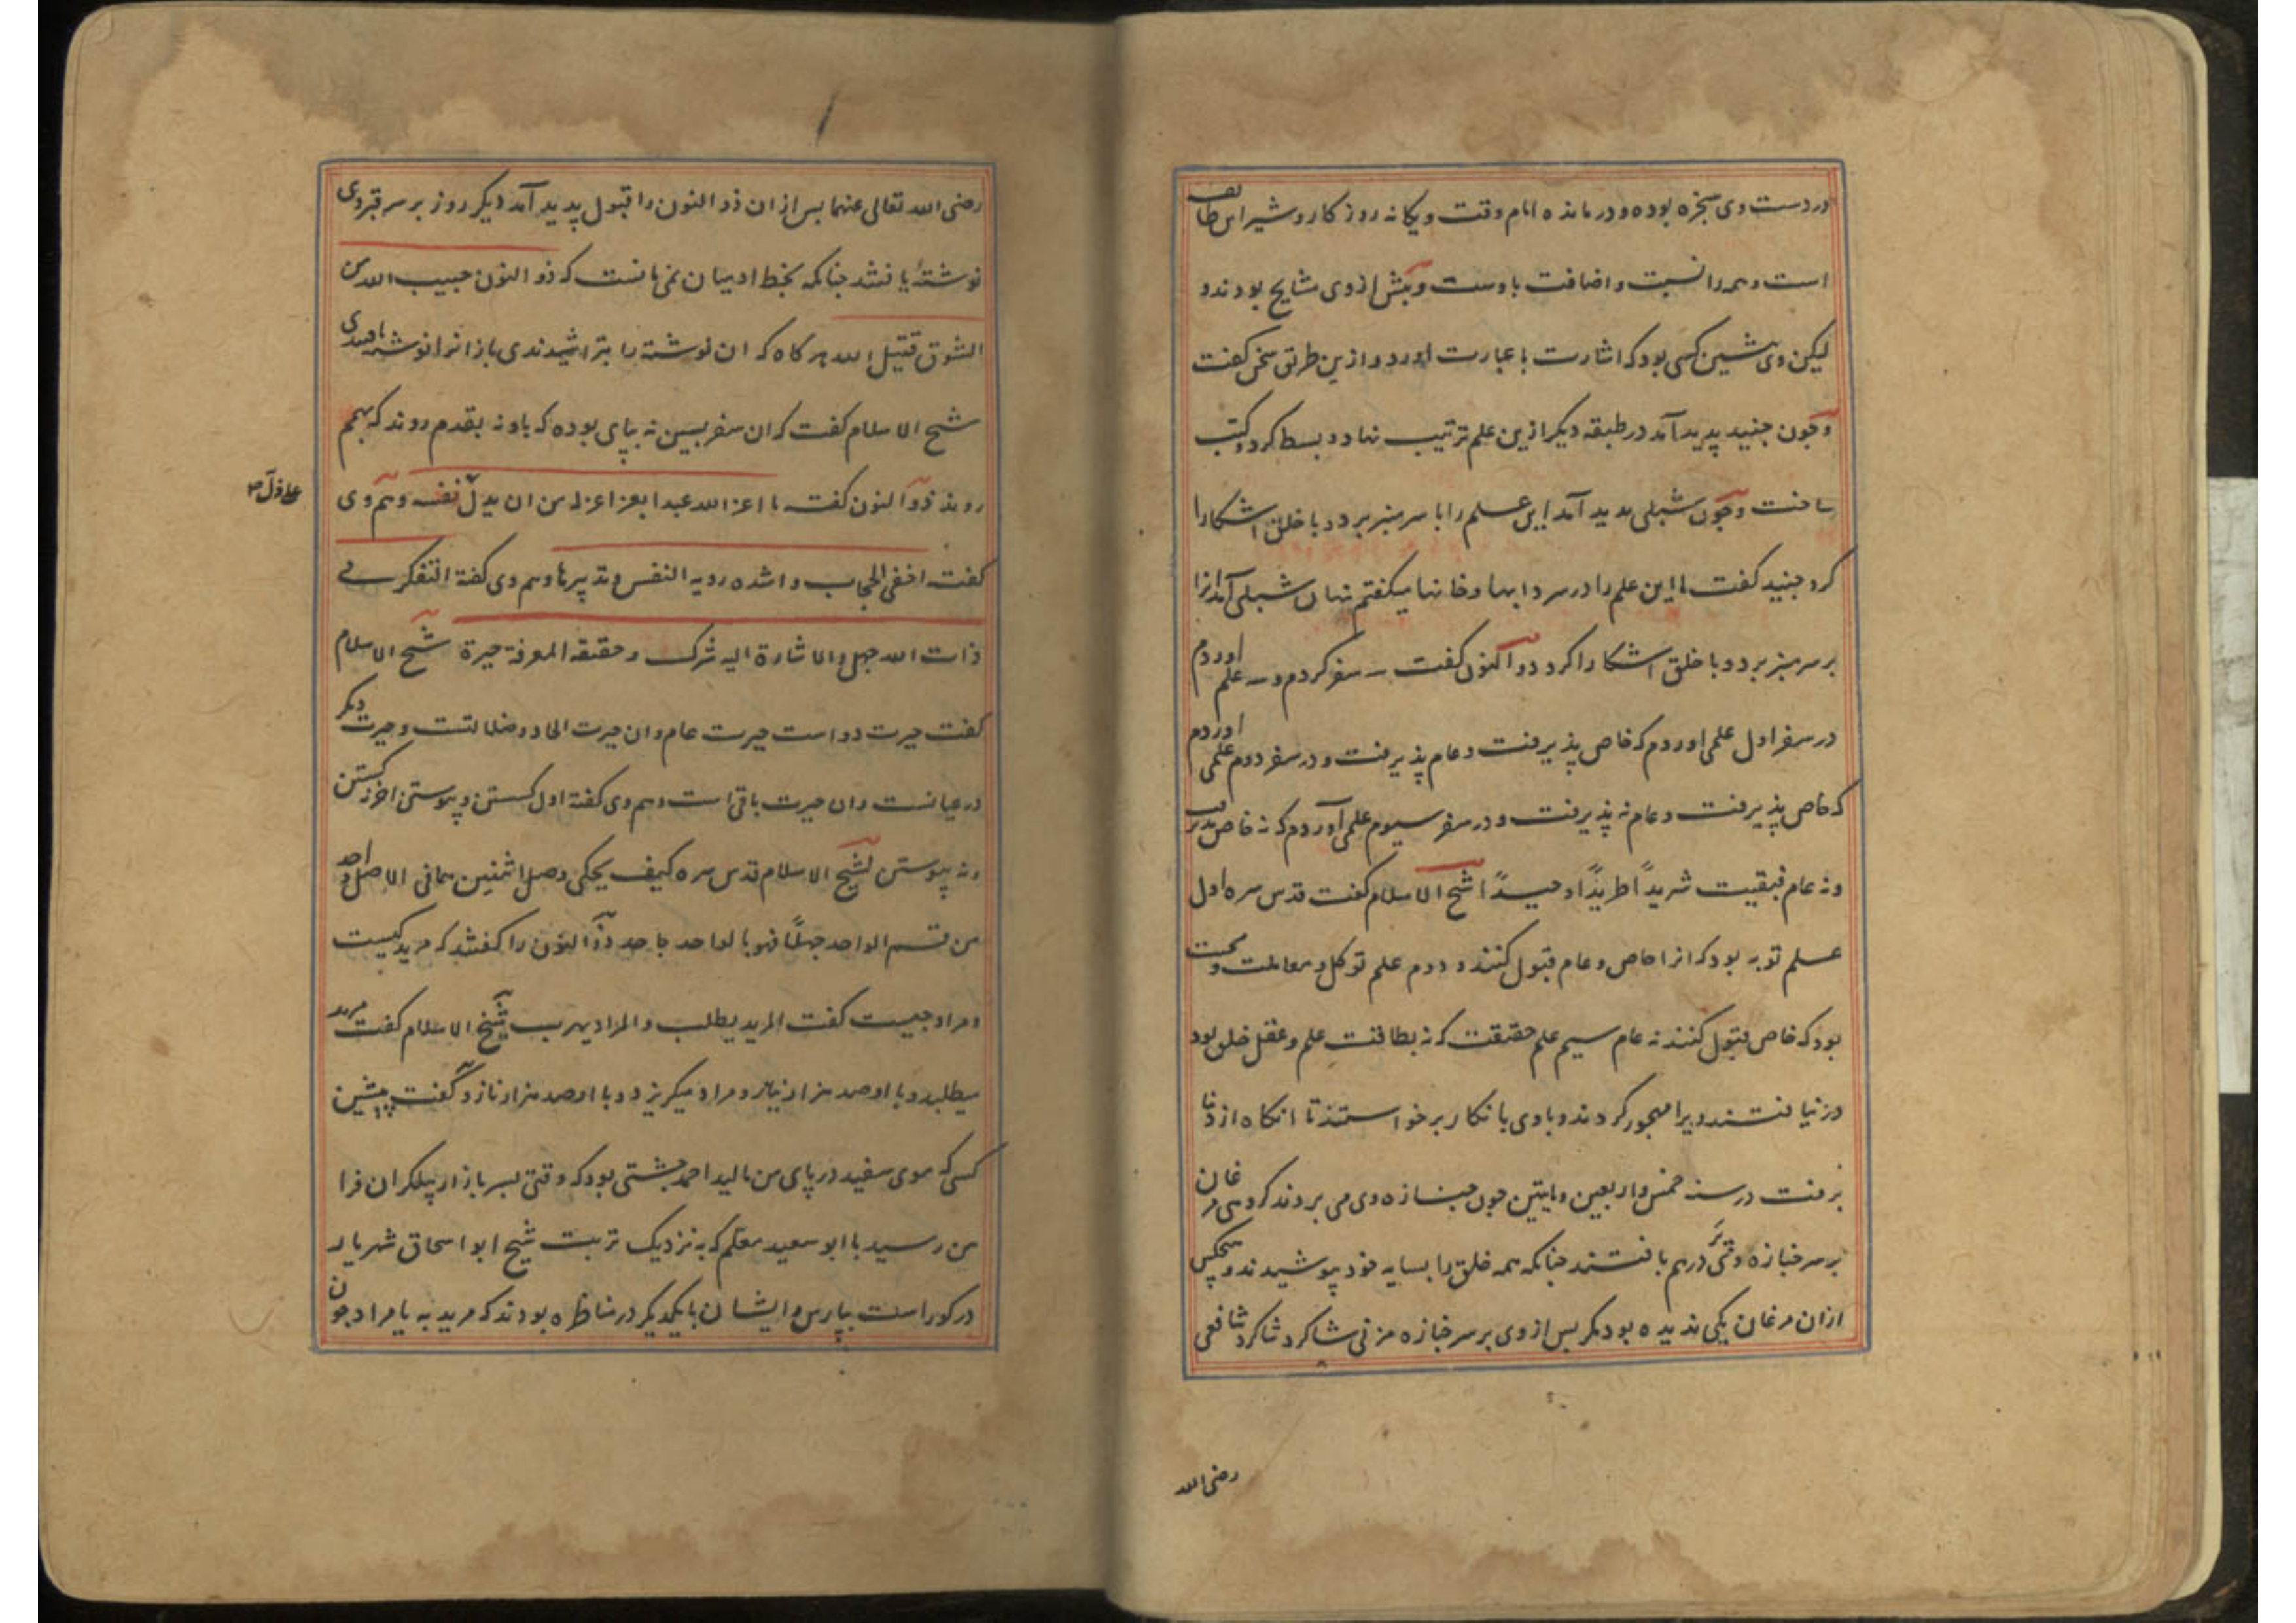 در دست وی سخره بوده و درمانده امام وقت و یکانه روزکار و شیر این طایفه
است و همه را نسبت و اضافت باوست و پیش از وی مشایخ بودند و
لیکن وی پیشین کسی بود که اشارت با عبارت اورد و ازین طریق سخن کفت
و چون جنید پدید آمد در طبقه دیکر ازین علم ترتیب نهاد و بسط کرد و کتب
ساخت و چون شبلی پدید آمد این علم را با سر منبر برد و با خلق اشکارا
کرد جنید کفت ما این علم را در سردابها و خانها میکفتم نهان شبلی آمد انرا
بر سر منبر برد و با خلق اشکارا کرد ذو النون کفت سه سفر کردم و سه علم اوردم
در سفر اول علمی اوردم که خاص پذیرفت و عام پذیرفت و در سفر دوم علمی اوردم
که خاص پذیرفت و عام نه پذیرفت و در سفر سیوم علمی آوردم که نه خاص پذیرفت
و نه عام فبقیت شریداً طریداً وحیداً شیخ الاسلام کفت قدس سره اول
علم توبه بود که انرا خاص و عام قبول کنند و دوم علم توکل و معاملت و محبت
بود که خاص قبول کنند نه عام سیم علم حقیقت که نه بطاقت علم و عقل خلق بود
در نیافتند ویرا مهجور کردند و با وی بانکار برخواستند تا انکاه از دنیا
برفت در سنه خمس و اربعین و مایتین چون جنازه وی می بردند کروهی مرغان
بر سر جنازه وی پر درهم بافتند چنانکه همه خلق را بسایه خود پوشیدند و هیچکس
ازان مرغان یکی ندیده بود مکر پس از وی بر سر جنازه مزنی شاکرد شافعی
رضی الله
رضی الله تعالی عنهما پس ازان ذو النون را قبول پدید آمد دیکر روز بر سر قبر وی
نوشتهٔ یافتند چنانکه بخط ادمیان نمی مانست که ذو النون حبیب الله من
الشوق قتیل الله هر کاه که ان نوشته را بتراشیدندی باز انرا نوشته یافتندی
شیخ الاسلام کفت که ان سفر پسین نه بپای بوده که باو نه بقدم روند که بهمم
روند ذو النون کفت ما اعز الله عبدا بعز اعز له من ان یدل نفسه و هم وی
علی ذل
کفت اخفی الحجاب و اشده رویه النفس و تدبیرها و هم وی کفته التفکر فی
ذات الله جهل و الاشارة الیه شرک و حقیقه المعرفة حیرة شیخ الاسلام
کفت حیرت دو است حیرت عام و ان حیرت الحاد و ضلالتست و حیرت دیکر
در عیانست و ان حیرت یافت است و هم وی کفته اول کسستن و پیوستن اخر نه کسستن
و نه پیوستن شیخ الاسلام قدس سره کیف یحکی وصل اثنین هما فی الاصل واحد
من قسم الواحد جهلاً فهو بالواحد جاحد ذو النون را کفتند که مرید کیست
و مراد چیست کفت المرید یطلب و المراد یهرب شیخ الاسلام کفت مرید
میطلبد و با او صد هزار نیاز و مراد میکریزد و با او صد هزار ناز و کفت پیشین
کسی که موی سفید در پای من مالید احمد چشتی بود که وقتی بسر بازار پیلکران فرا
من رسید با ابو سعید معلم که به نزدیک تربت شیخ ابو اسحاق شهریار
در کور است بپارس و ایشان با یکدیکر در مناظره بودند که مرید به یا مراد چون